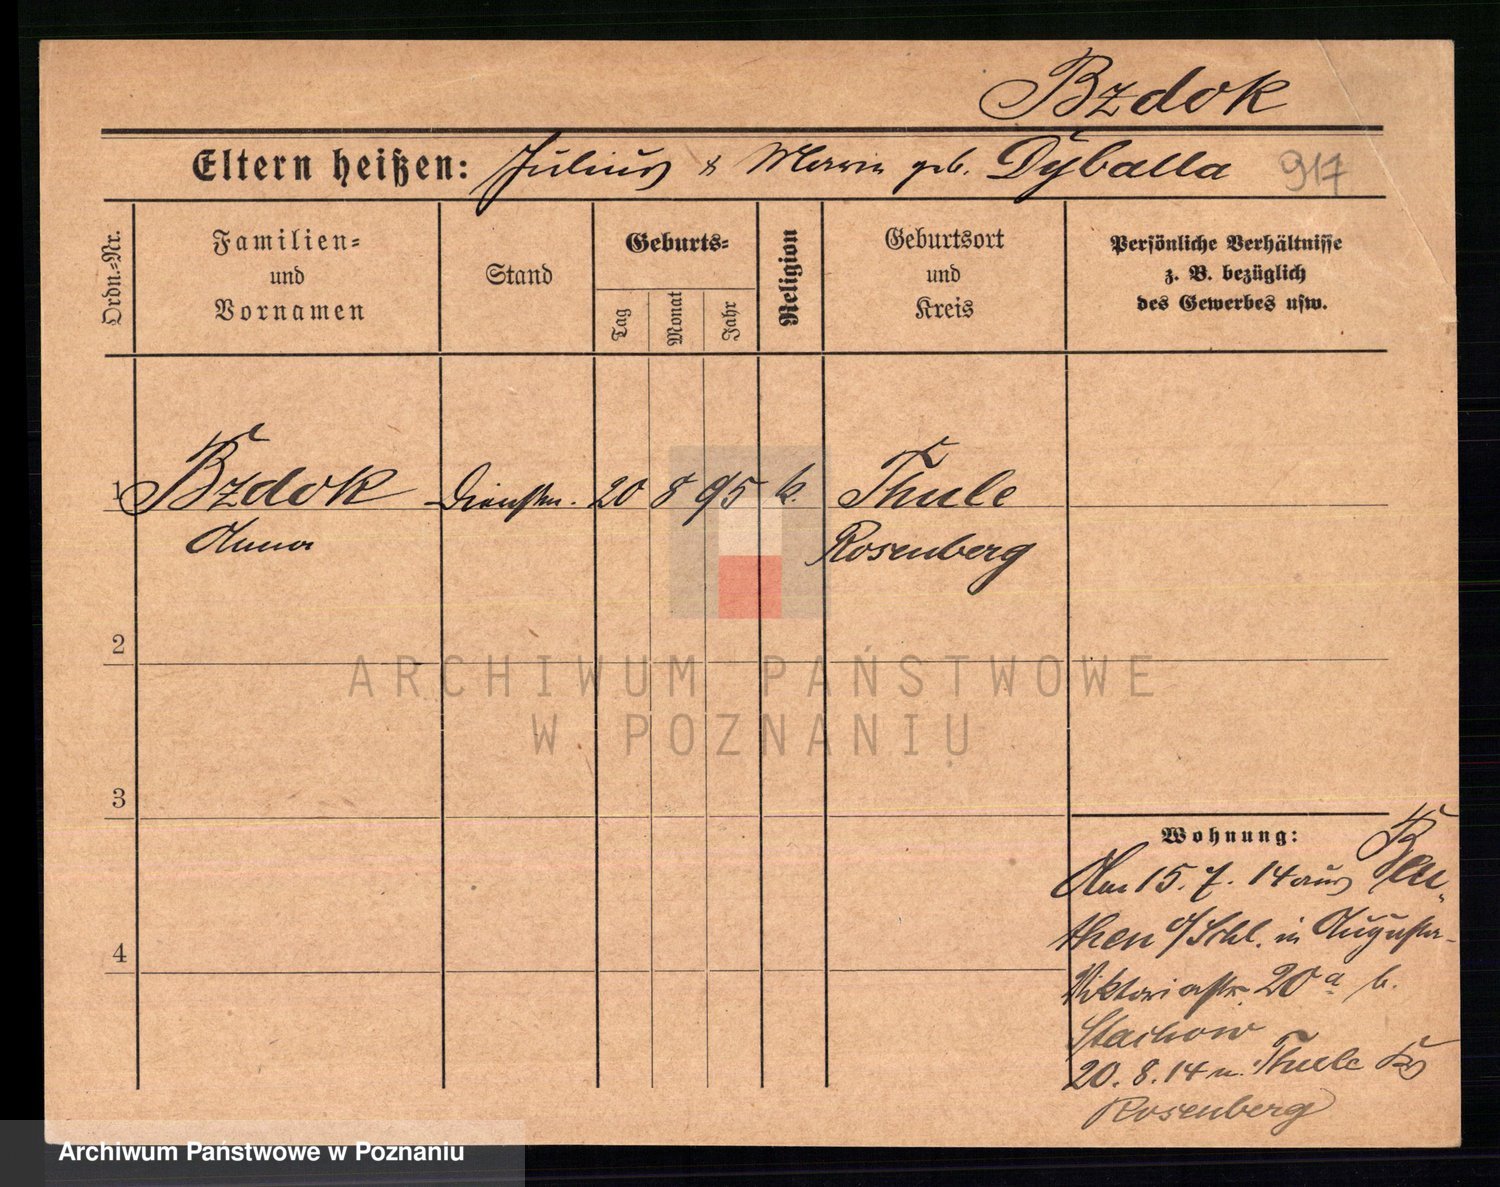 Bzdok
Eltern heißen: Julius & Marie geb. Dyballa 917
Ordn.=Nr.
Familien=
und
Vornamen
Stand
Geburts=
Tag
Monat
Jahr
Religion
Geburtsort
und
Kreis
Persönliche Verhältnisse
z. B. bezüglich
des Gewerbes usw.
1 Bzdok Dienstm. 20 8 95 k. Thule
Anna Rosenberg
2
3
4
Wohnung:
Am 15. 7. 14 aus Beu-
then o/Schl. in Augusta-
Viktoriastr. 20a b.
Stachow
20. 8. 14 n. Thule Ks
Rosenberg
ARCHIWUM PAŃSTWOWE
W POZNANIU
Archiwum Państwowe w Poznaniu